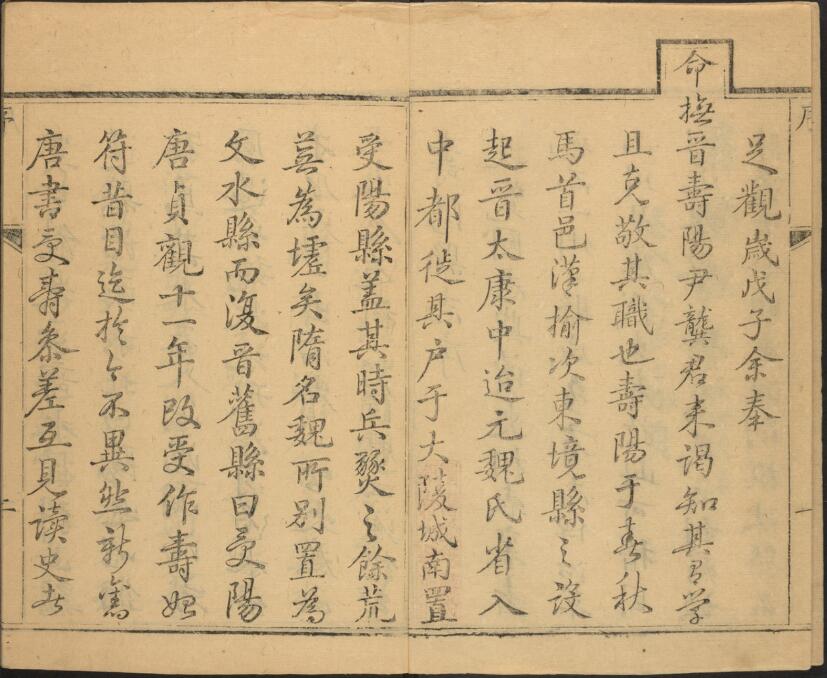 序
足觀歲戊子余奉
命撫晉壽陽尹龔君来謁知其有学
且克敬其職也壽陽于春秋
馬首邑漢榆次東境縣之設
起晉太康中迨元魏氏省入
中都徙其户于大陵城南置
一
受陽縣蓋其時兵燹之餘荒
蕪為墟矣隋名魏所别置為
文水縣而復晋舊縣曰受陽
唐貞觀十一年改受作壽始
符昔目迄於今不異然新舊
唐書受壽叅差互見读史者
序
二